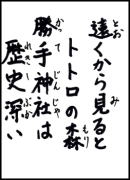 とお
遠くから見ると
もり
トトロの森
かってじんじゃ
勝手神社は
れきしぶか
歴史深い